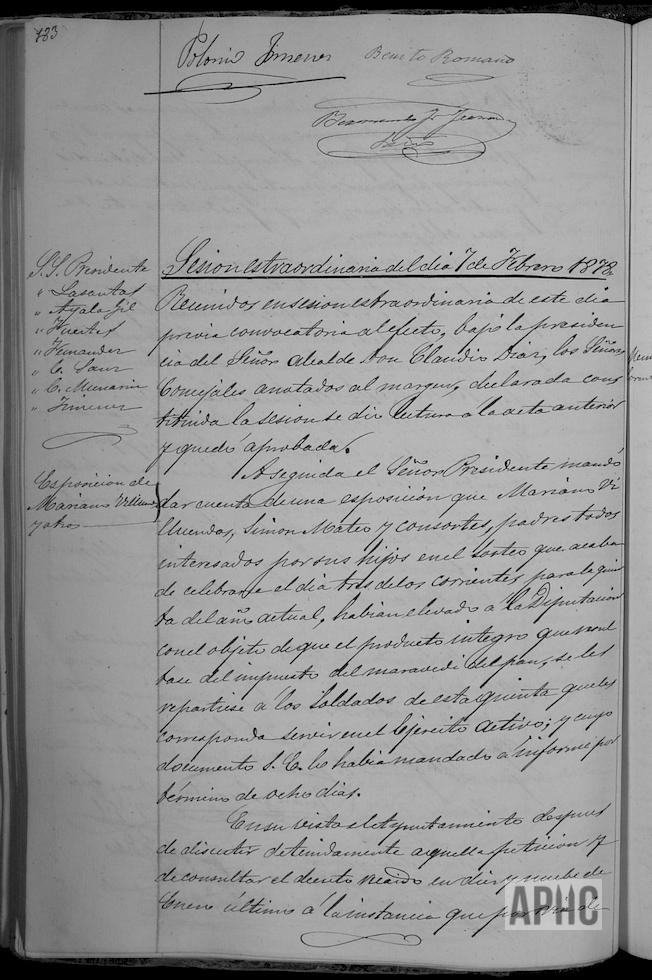 783
Polonio Jimenez
Benito Romano
Sesion estraordinaria del dia 7 de Febrero 1878.
S. S. Presidente
" Lasantas
" Ayala Gil
" Huertas
" Hernandez
" C. Sanz
" C. Munarriz
" Jimenez
Reunidos en sesion estraordinaria de este dia
previa convocatoria al efecto, bajo la presiden
cia del Señor Alcalde Don Claudio Diaz, los Señores
Concejales anotados al margen, declarada cons
tituida la sesion se dió lectura á la acta anterior
y quedó aprobada.
Esposicion de
Mariano Villuendas
y otros
A seguida el Señor Presidente mandó
dar cuenta de una esposición que Mariano Vi
lluendas, Simon Mateo y consortes, padres todos
interesados por sus hijos en el sorteo que acaba
de celebrarse el dia tres de los corrientes para la quin
ta del año actual, habian elevado á la Diputacion
con el objeto de que el producto integro que resul
tase del impuesto del maravedi del pan, se les
repartiese á los soldados de esta quinta que les
corresponda servir en el Ejercito activo; y cuyo
documento S. E. lo habia mandado á informe por
término de ocho dias.
En su vista el Ayuntamiento despues
de discutir detenidamente aquella peticion y
de consultar el decreto recaido en diez y nueve de
Enero ultimo á la instancia que por via de
APHC